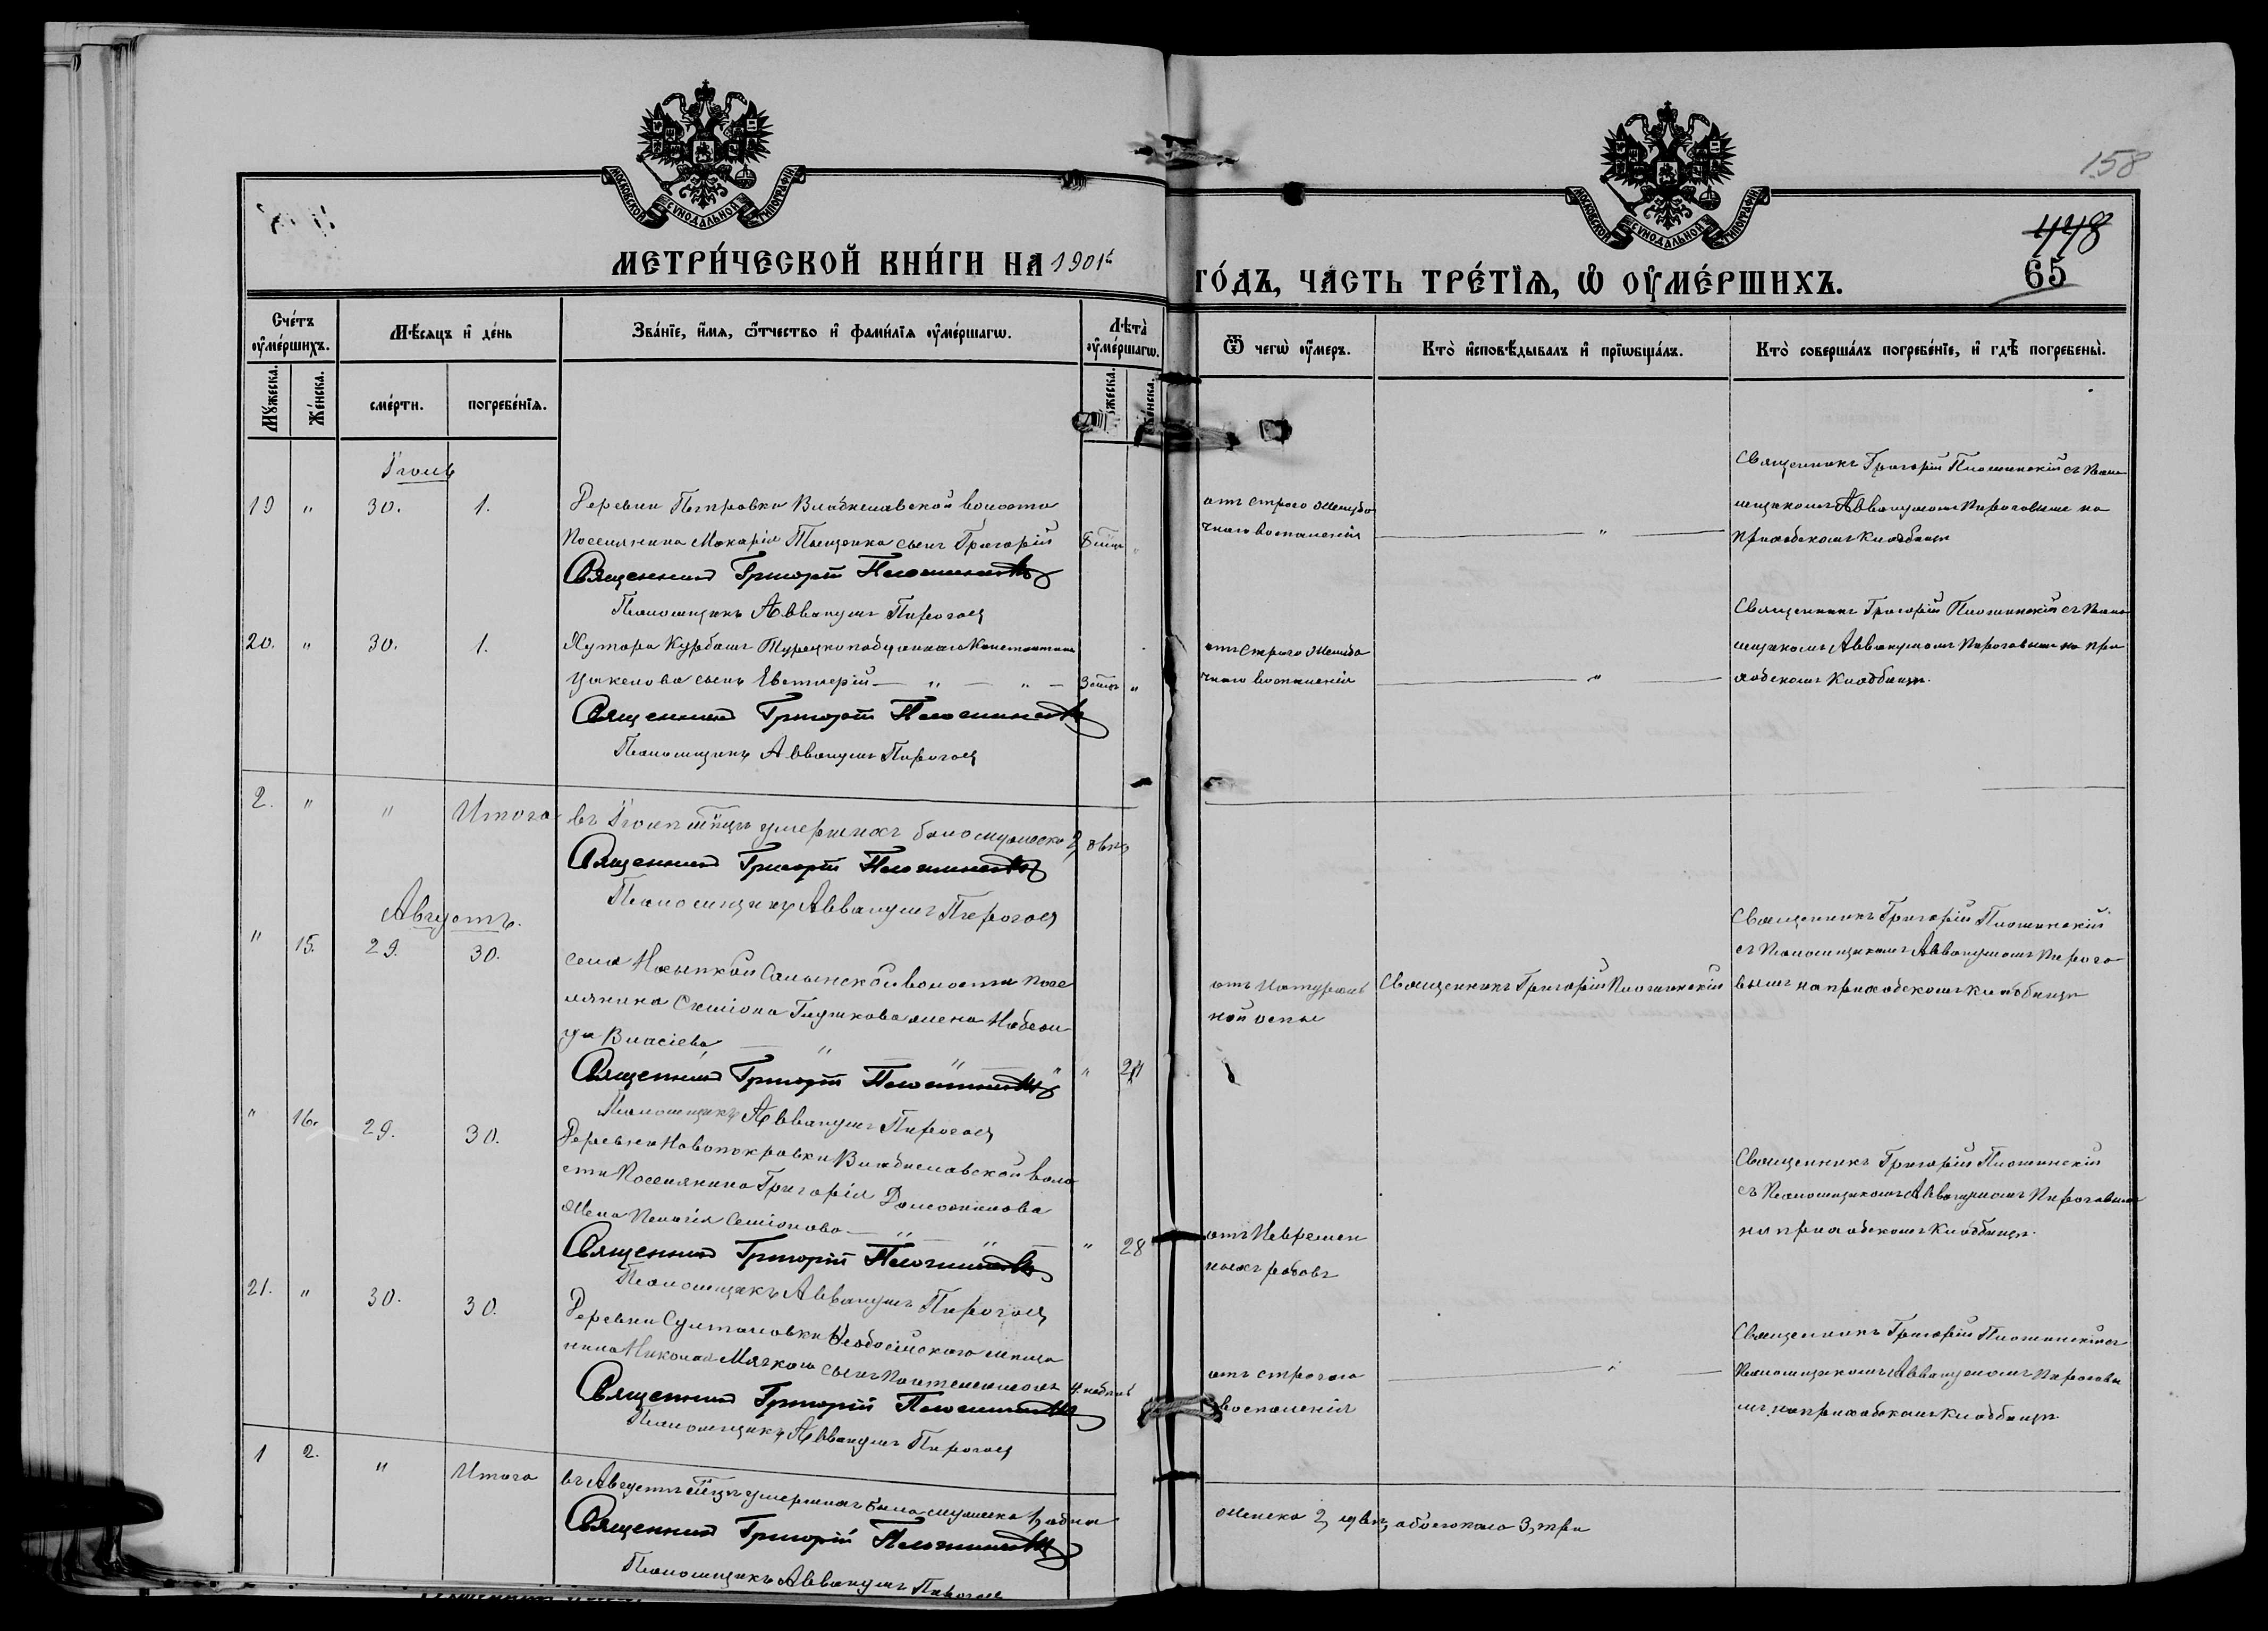 158
МОСКОВСКОЙ СѴНОДАЛЬНОЙ ТИПОГРАФІИ
МОСКОВСКОЙ СѴНОДАЛЬНОЙ ТИПОГРАФІИ
448
65
МЕТРИ́ЧЕСКОЙ КНИ́ГИ НА 1901й
ГО́ДЪ, ЧА́СТЬ ТРЕ́ТІѦ, Ѡ҆ ОУ҆МЕ́РШИХЪ.
Сче́тъ оу҆ме́ршихъ.
Мꙋжеска.
Же́нска.
Мѣ́сяцъ и҆ де́нь
сме́рти.
погребе́нїѧ.
Зва́нїе, и҆́мѧ, ѻ҆́тчество и҆ фами́лїѧ оу҆ме́ршагѡ.
Лѣта̀ оу҆ме́ршагѡ.
Мꙋжеска.
Же́нска.
Ѿ чегѡ̀ оу҆́меръ.
Кто̀ и҆сповѣ́дывалъ и҆ прїѡбща́лъ.
Кто̀ соверша́лъ погребе́нїе, и҆ гдѣ̀ погребены̀.
Іюль
19 " 30. 1.
Деревни Петровки Владиславской волости
поселянина Макарія Тищенка сынъ Григорій
Священникъ Григорій
Псаломщикъ Аввакумъ Пироговъ
"
Священникъ Григорій съ Псало
мщикомъ Аввакумомъ Пироговымъ на
приходскомъ кладбищѣ
20. " 30. 1.
Хутора Курбашъ Турецкоподданнаго Константина
сынъ Евстаѳій — " — " —
Священникъ Григорій
Псаломщикъ Аввакумъ Пироговъ
"
Священникъ Григорій съ Псало
мщикомъ Аввакумомъ Пироговымъ на при
ходскомъ кладбищѣ.
2. " " Итого
въ Іюлѣ м-цѣ умершихъ было мужеска 2, двѣ
Священникъ Григорій
Псаломщикъ Аввакумъ Пироговъ
Августъ.
" 15. 29. 30.
села Насыпкой Салынской волости посе
лянина Симіона Глушкова жена Надеж
да Власіева — " —
Священникъ Григорій
" 24
Псаломщикъ Аввакумъ Пироговъ
отъ натураль
ной оспы
Священникъ Григорій
Священникъ Григорій
съ Псаломщикомъ Аввакумомъ Пирого
вымъ на приходскомъ кладбищѣ
" 16. 29. 30.
Деревни Новопокровки Владиславской воло
сти поселянина Григорія
жена Пелагія Семіонова — " — " —
Священникъ Григорій
" 28
Псаломщикъ Аввакумъ Пироговъ
отъ
родовъ
Священникъ Григорій
съ Псаломщикомъ Аввакумомъ Пироговымъ
на приходскомъ кладбищѣ.
21. " 30. 30.
Деревни Султановки Ѳеодосійского мѣща
нина Николая Мягкого сынъ Пантелеимонъ
Священникъ Григорій
Псаломщикъ Аввакумъ Пироговъ
воспаленія
"
Священникъ Григорій съ
Псаломщикомъ Аввакумомъ Пироговы
мъ на приходскомъ кладбищѣ.
1 2. " Итого
въ Августѣ м-цѣ умершихъ было мужеска 1, одна
женска 2, двѣ, обоего пола 3, три
Священникъ Григорій
Псаломщикъ Аввакумъ Пироговъ